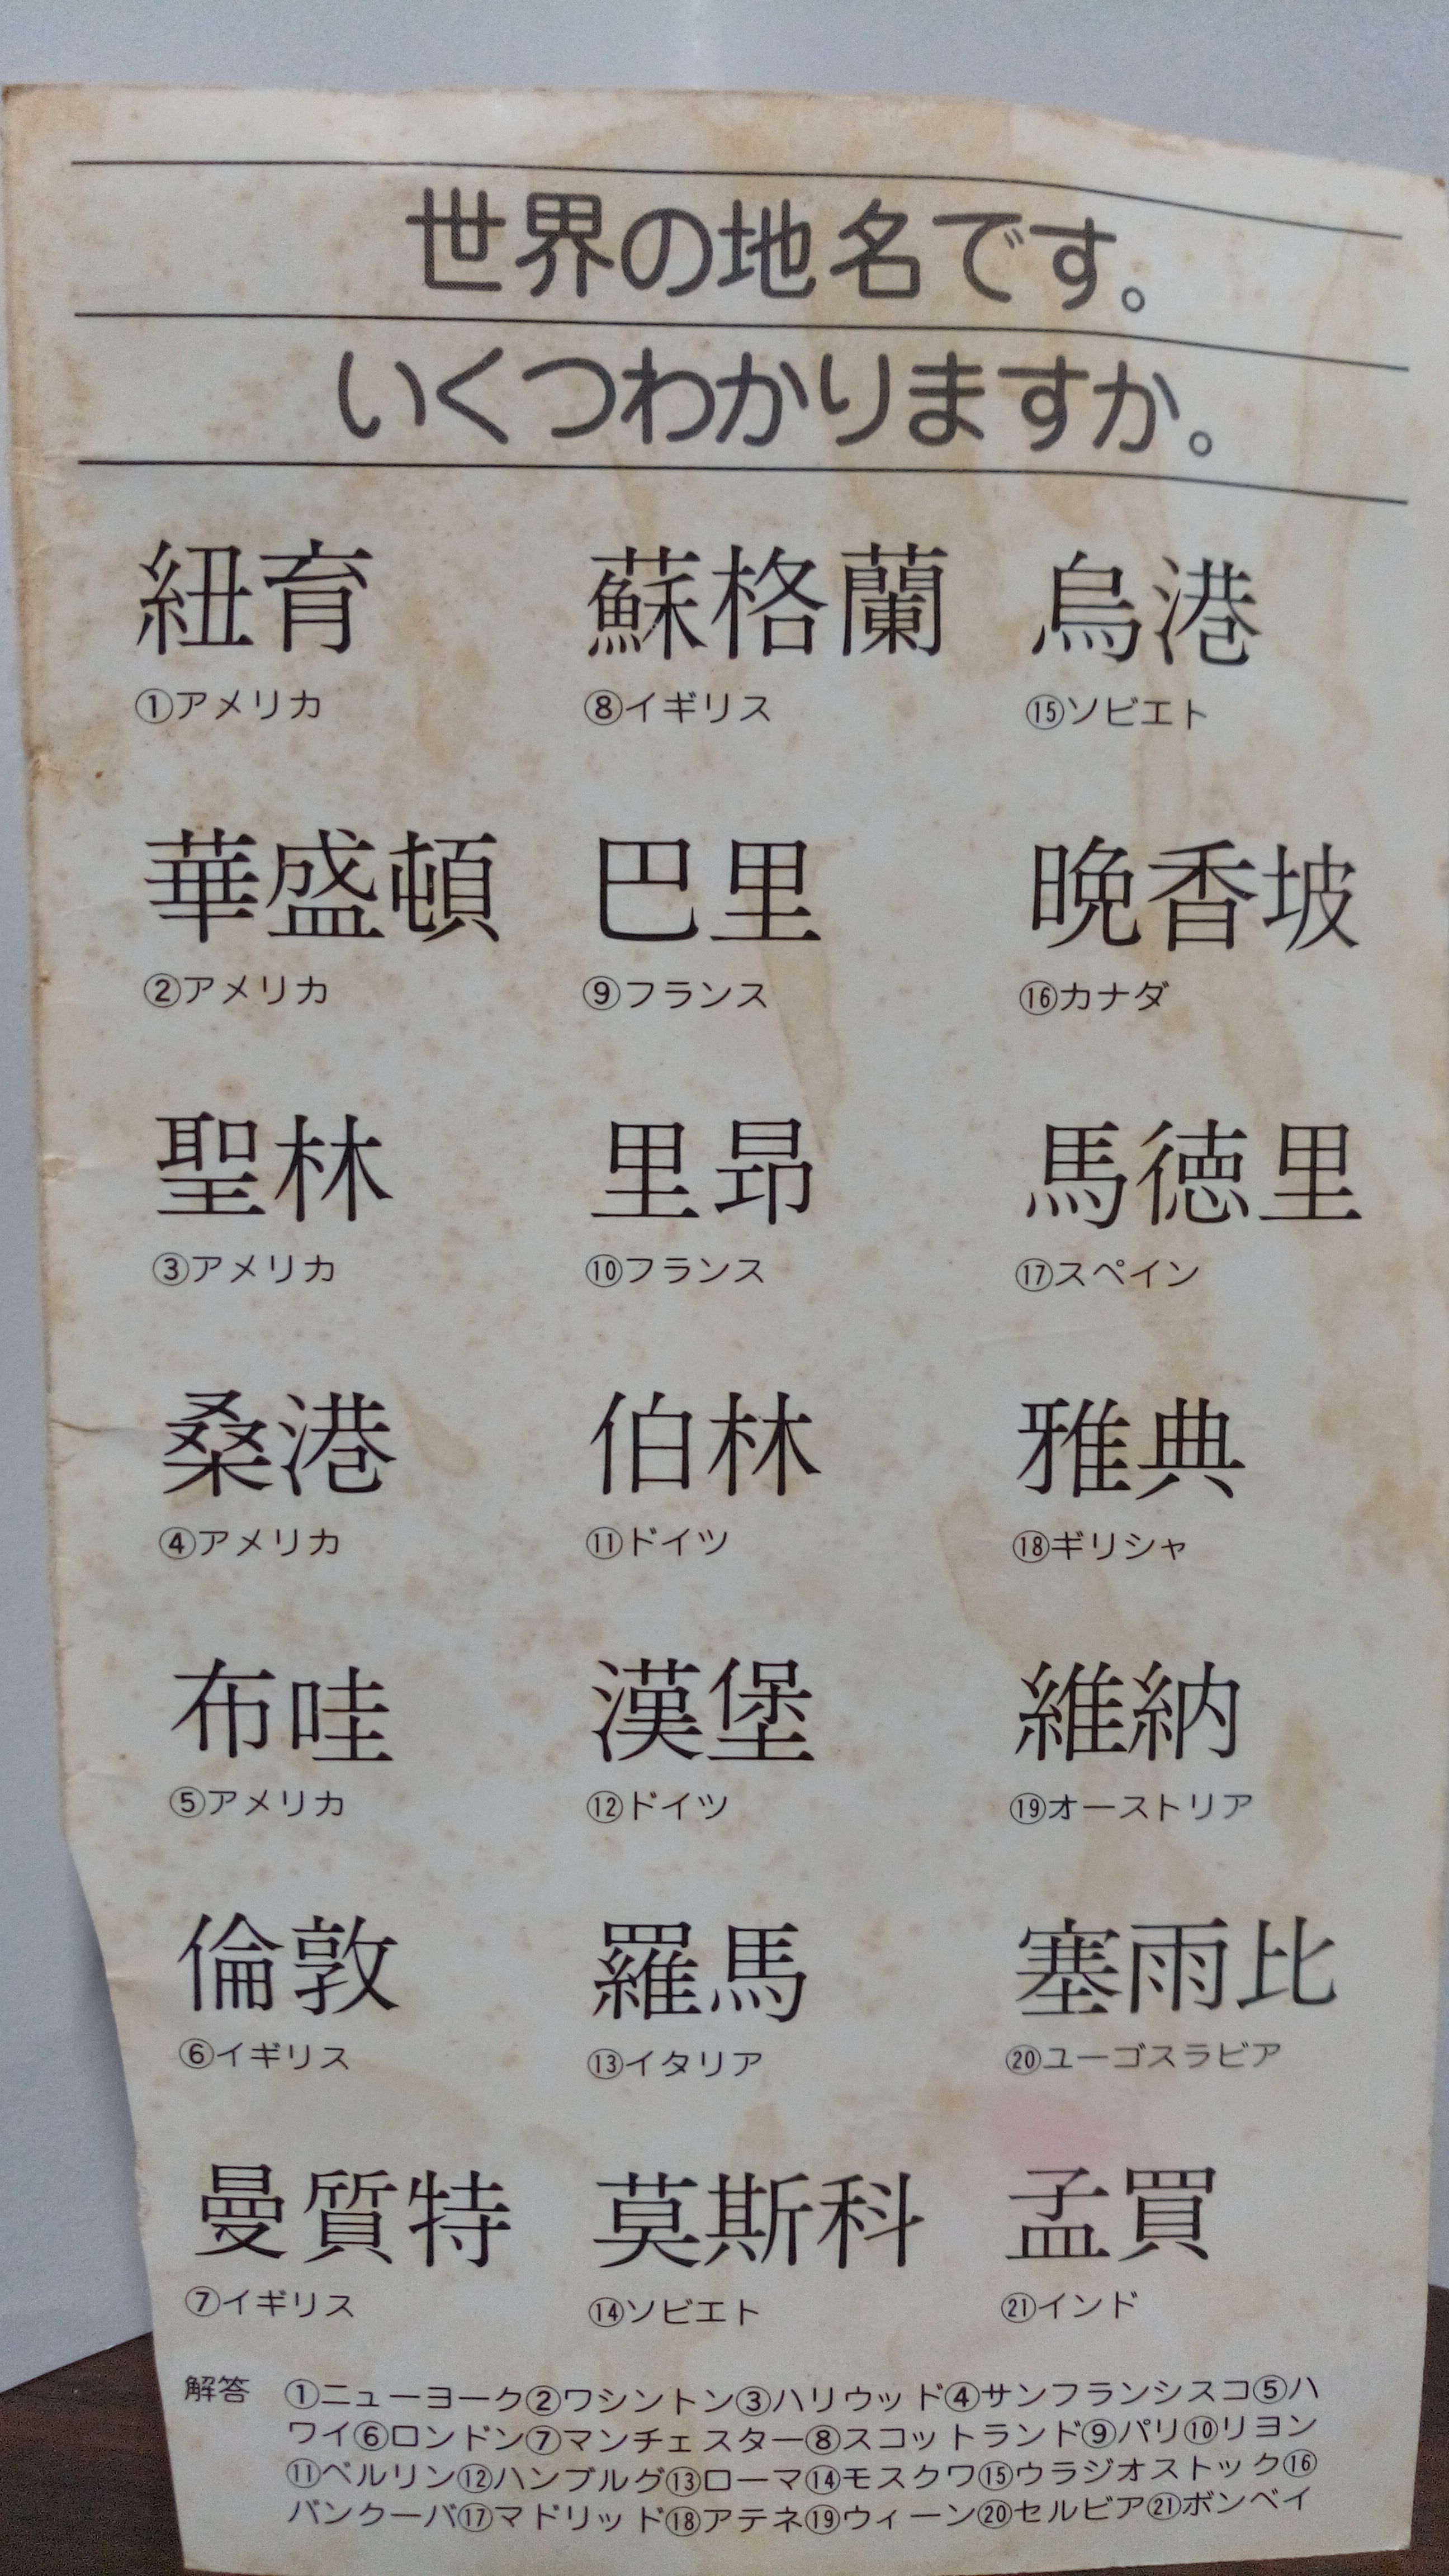 世界の地名です。
いくつわかりますか。
紐育
①アメリカ
華盛頓
②アメリカ
聖林
③アメリカ
桑港
④アメリカ
布哇
⑤アメリカ
倫敦
⑥イギリス
曼質特
⑦イギリス
蘇格蘭
⑧イギリス
巴里
⑨フランス
里昂
⑩フランス
伯林
⑪ドイツ
漢堡
⑫ドイツ
羅馬
⑬イタリア
莫斯科
⑭ソビエト
烏港
⑮ソビエト
晩香坡
⑯カナダ
馬徳里
⑰スペイン
雅典
⑱ギリシャ
維納
⑲オーストリア
塞雨比
⑳ユーゴスラビア
孟買
㉑インド
解答 ①ニューヨーク②ワシントン③ハリウッド④サンフランシスコ⑤ハ
ワイ⑥ロンドン⑦マンチェスター⑧スコットランド⑨パリ⑩リヨン
⑪ベルリン⑫ハンブルグ⑬ローマ⑭モスクワ⑮ウラジオストック⑯
バンクーバ⑰マドリッド⑱アテネ⑲ウィーン⑳セルビア㉑ボンベイ